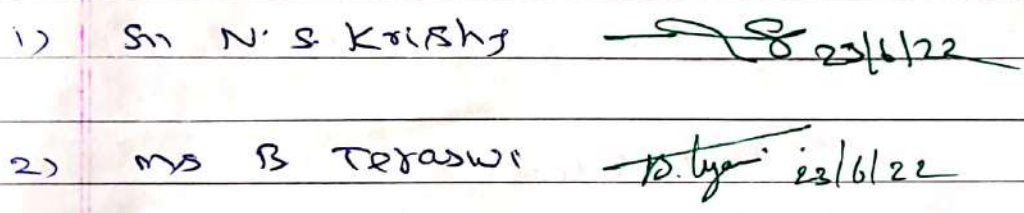 1) Sri N. S. Krishna 23/6/22
2) Ms B Tejaswi 23/6/22